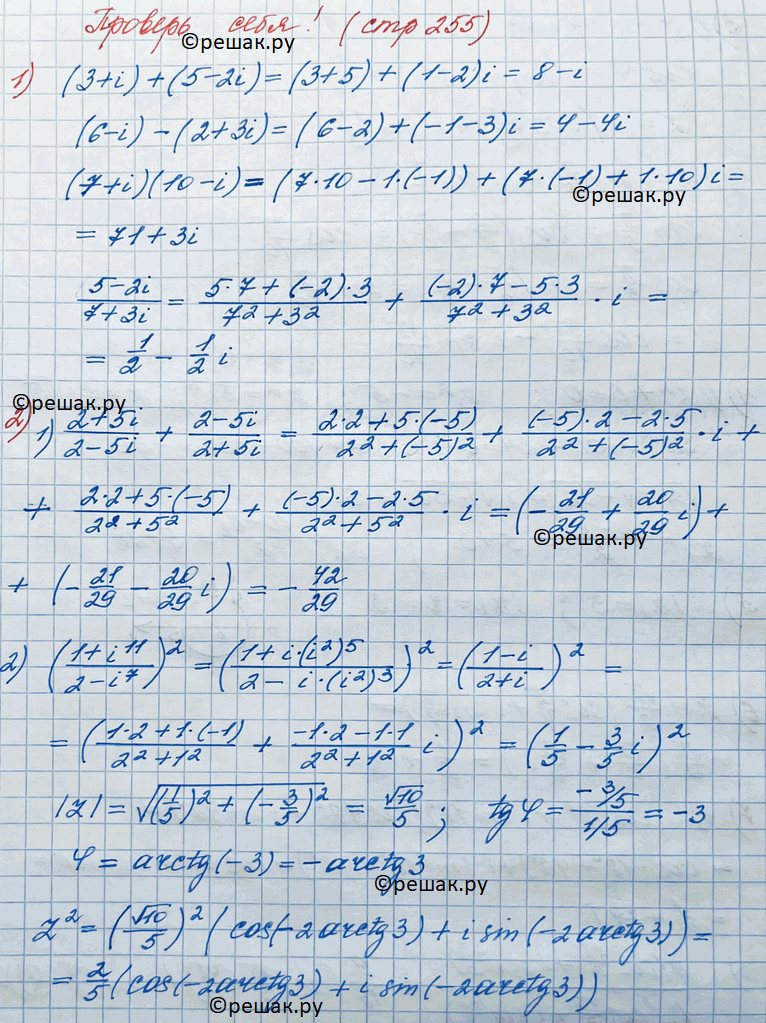 Проверь себя! (стр 255)
©решак.ру
1) (3+i)+(5-2i)=(3+5)+(1-2)i=8-i
(6-i)-(2+3i)=(6-2)+(-1-3)i=4-4i
(7+i)(10-i)=(7·10-1·(-1))+(7·(-1)+1·10)i=
©решак.ру
=71+3i
(5-2i)/(7+3i) = (5·7+(-2)·3)/(7²+3²) + ((-2)·7-5·3)/(7²+3²)·i =
= 1/2 - 1/2 i
©решак.ру
2) 1) (2+5i)/(2-5i) + (2-5i)/(2+5i) = (2·2+5·(-5))/(2²+(-5)²) + ((-5)·2-2·5)/(2²+(-5)²)·i +
+ (2·2+5·(-5))/(2²+5²) + ((-5)·2-2·5)/(2²+5²)·i = (-21/29 + 20/29 i) +
©решак.ру
+ (-21/29 - 20/29 i) = -42/29
2) ((1+i¹¹)/(2-i⁷))² = ((1+i·(i²)⁵)/(2-i·(i²)³))² = ((1-i)/(2+i))² =
= ((1·2+1·(-1))/(2²+1²) + (-1·2-1·1)/(2²+1²) i)² = (1/5 - 3/5 i)²
|z| = √((1/5)²+(-3/5)²) = √10/5 ; tg φ = (-3/5)/(1/5) = -3
φ = arctg(-3) = -arctg 3
©решак.ру
z² = (√10/5)² (cos(-2arctg3) + i sin(-2arctg3)) =
= 2/5 (cos(-2arctg3) + i sin(-2arctg3))
©решак.ру